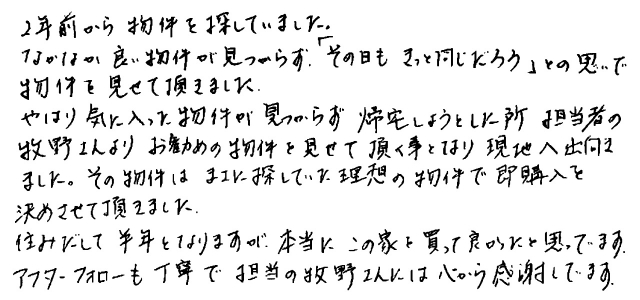 2年前から物件を探していました。
なかなか良い物件が見つからず、「その日もきっと同じだろう」との思いで
物件を見せて頂きました。
やはり気に入った物件が見つからず帰宅しようとした所 担当者の
牧野さんより お勧めの物件を見せて頂く事となり 現地へ出向き
ました。その物件は まさに探していた理想の物件で 即購入を
決めさせて頂きました。
住みだして半年となりますが、本当に この家を買って良かったと思ってます。
アフターフォローも丁寧で 担当の牧野さんには 心から感謝してます。